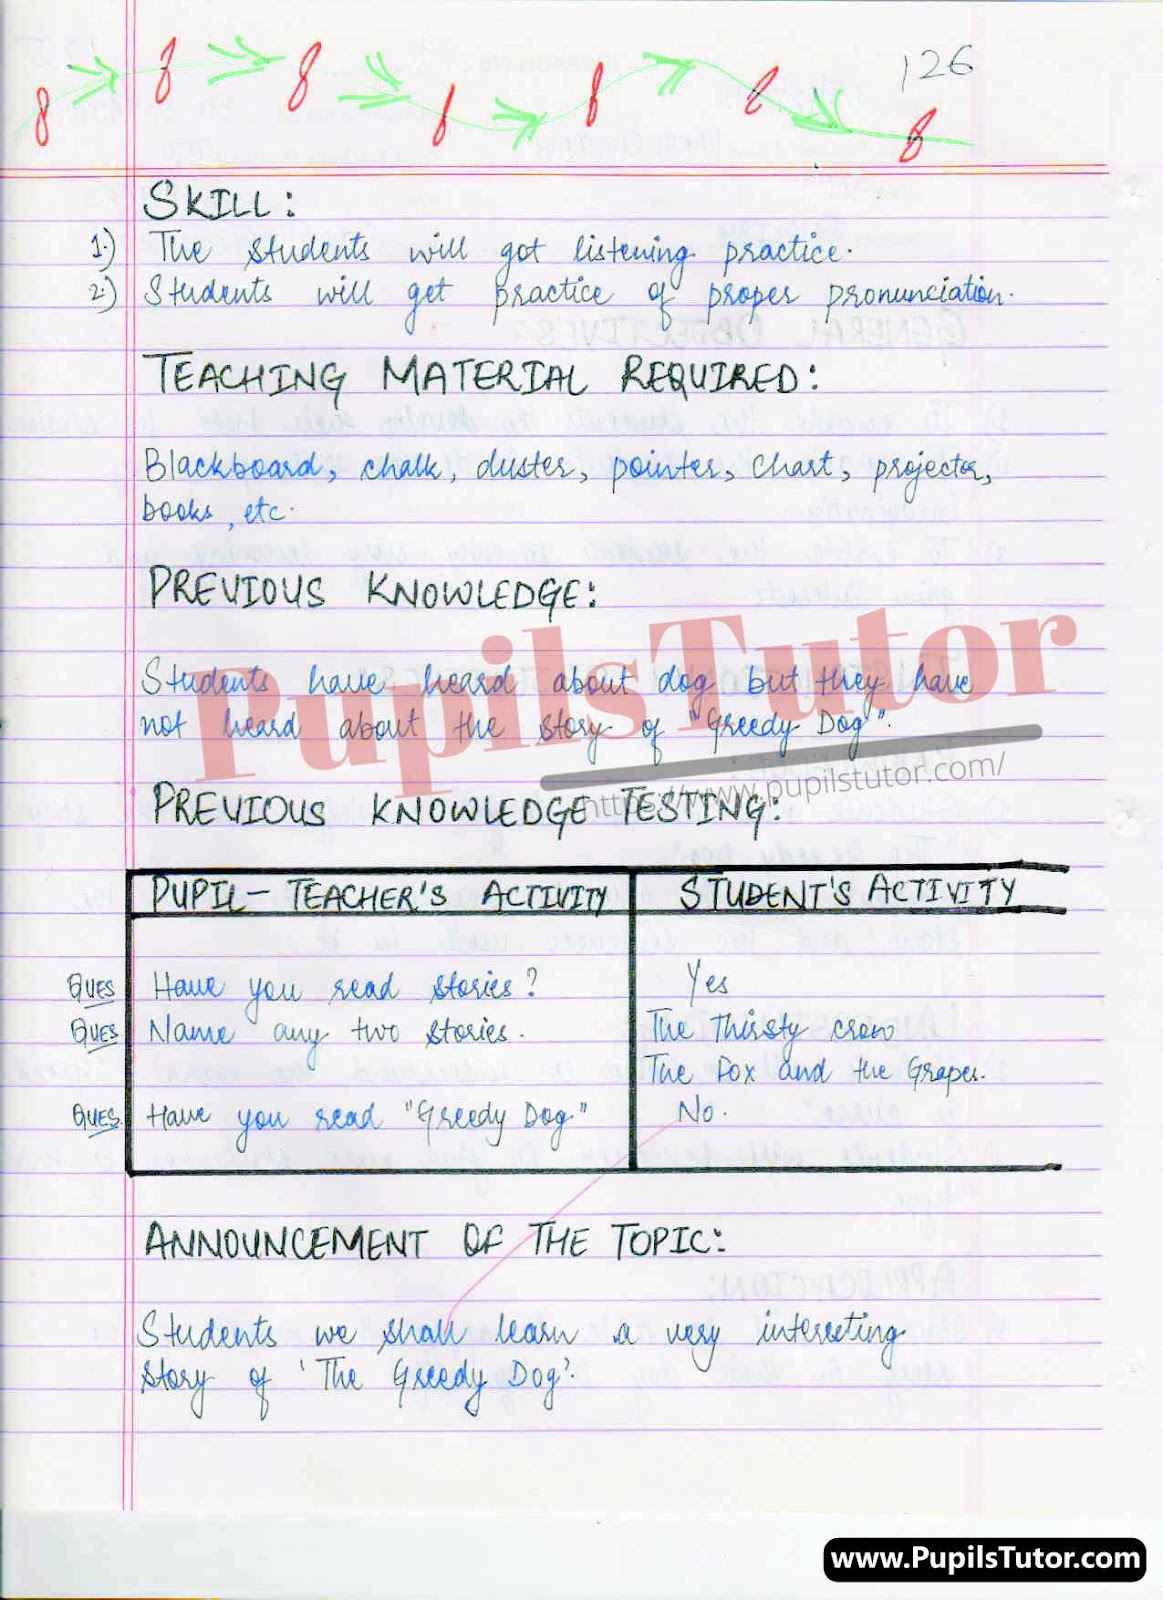 126
SKILL:
1.) The students will got listening practice.
2.) Students will get practice of proper pronunciation.
TEACHING MATERIAL REQUIRED:
Blackboard, chalk, duster, pointer, chart, projector,
books, etc.
PREVIOUS KNOWLEDGE:
Students have heard about dog but they have
not heard about the story of "Greedy Dog".
PupilsTutor
https://www.pupilstutor.com/
PREVIOUS KNOWLEDGE TESTING:
PUPIL-TEACHER'S ACTIVITY STUDENT'S ACTIVITY
Ques Have you read stories? Yes
Ques Name any two stories. The Thirsty crow
The Fox and the Grapes.
Ques. Have you read "Greedy Dog" No.
ANNOUNCEMENT OF THE TOPIC:
Students we shall learn a very interesting
story of 'The Greedy Dog'.
www.PupilsTutor.com